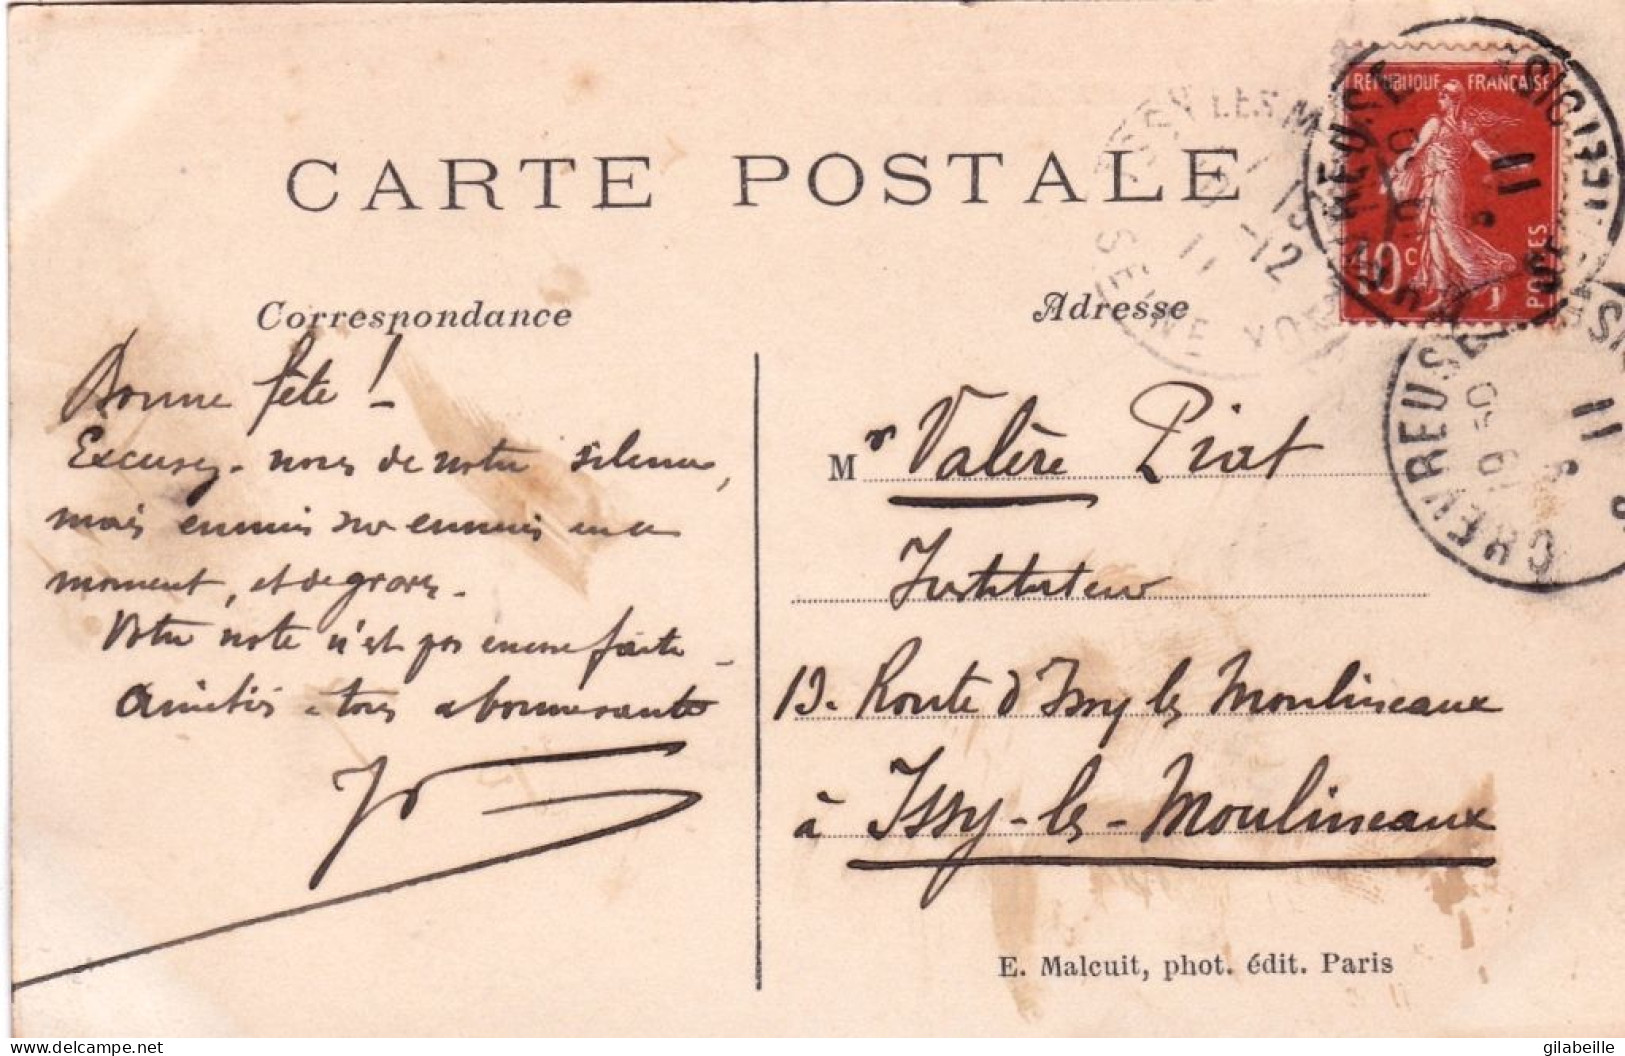 CARTE POSTALE
Correspondance
Bonne fête !
Excusez-nous de notre silence,
mais ennuis sur ennuis en ce
moment, et de graves.
Votre note n'est pas encore faite
Amitiés à tous
Adresse
Mr Valère Piat
Instituteur
13. Route d'Issy les Moulineaux
à Issy-les-Moulineaux
E. Malcuit, phot. édit. Paris
REPUBLIQUE FRANÇAISE
10c
POSTES
ISSY LES M
SEINE
CHEVREUSE
11
gilabeille